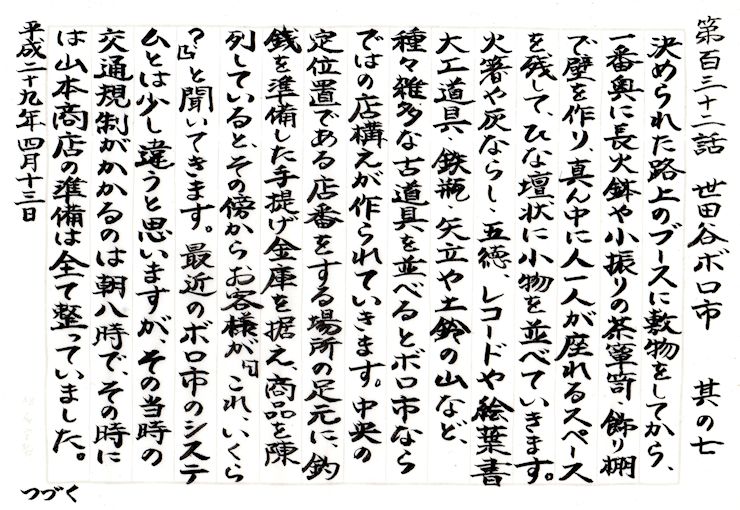 第百三十二話 世田谷ボロ市 其の七
決められた路上のブースに敷物をしてから、
一番奥に長火鉢や小振りの茶箪笥 飾り棚
で壁を作り、真ん中に人一人が座れるスペース
を残して、ひな壇状に小物を並べていきます。
火箸や灰ならし、五徳、レコードや絵葉書
大工道具、鉄瓶 矢立や土鈴の山など、
種々雑多な古道具を並べるとボロ市なら
ではの店構えが作られていきます。中央の
定位置である店番をする場所の足元に、釣
銭を準備した手提げ金庫を据え、商品を陳
列していると、その傍からお客様が「これ、いくら
?」と聞いてきます。最近のボロ市のシステ
ムとは少し違うと思いますが、その当時の
交通規制がかかるのは朝八時で、その時に
は山本商店の準備は全て整っていました。
平成二十九年四月十三日
つづく